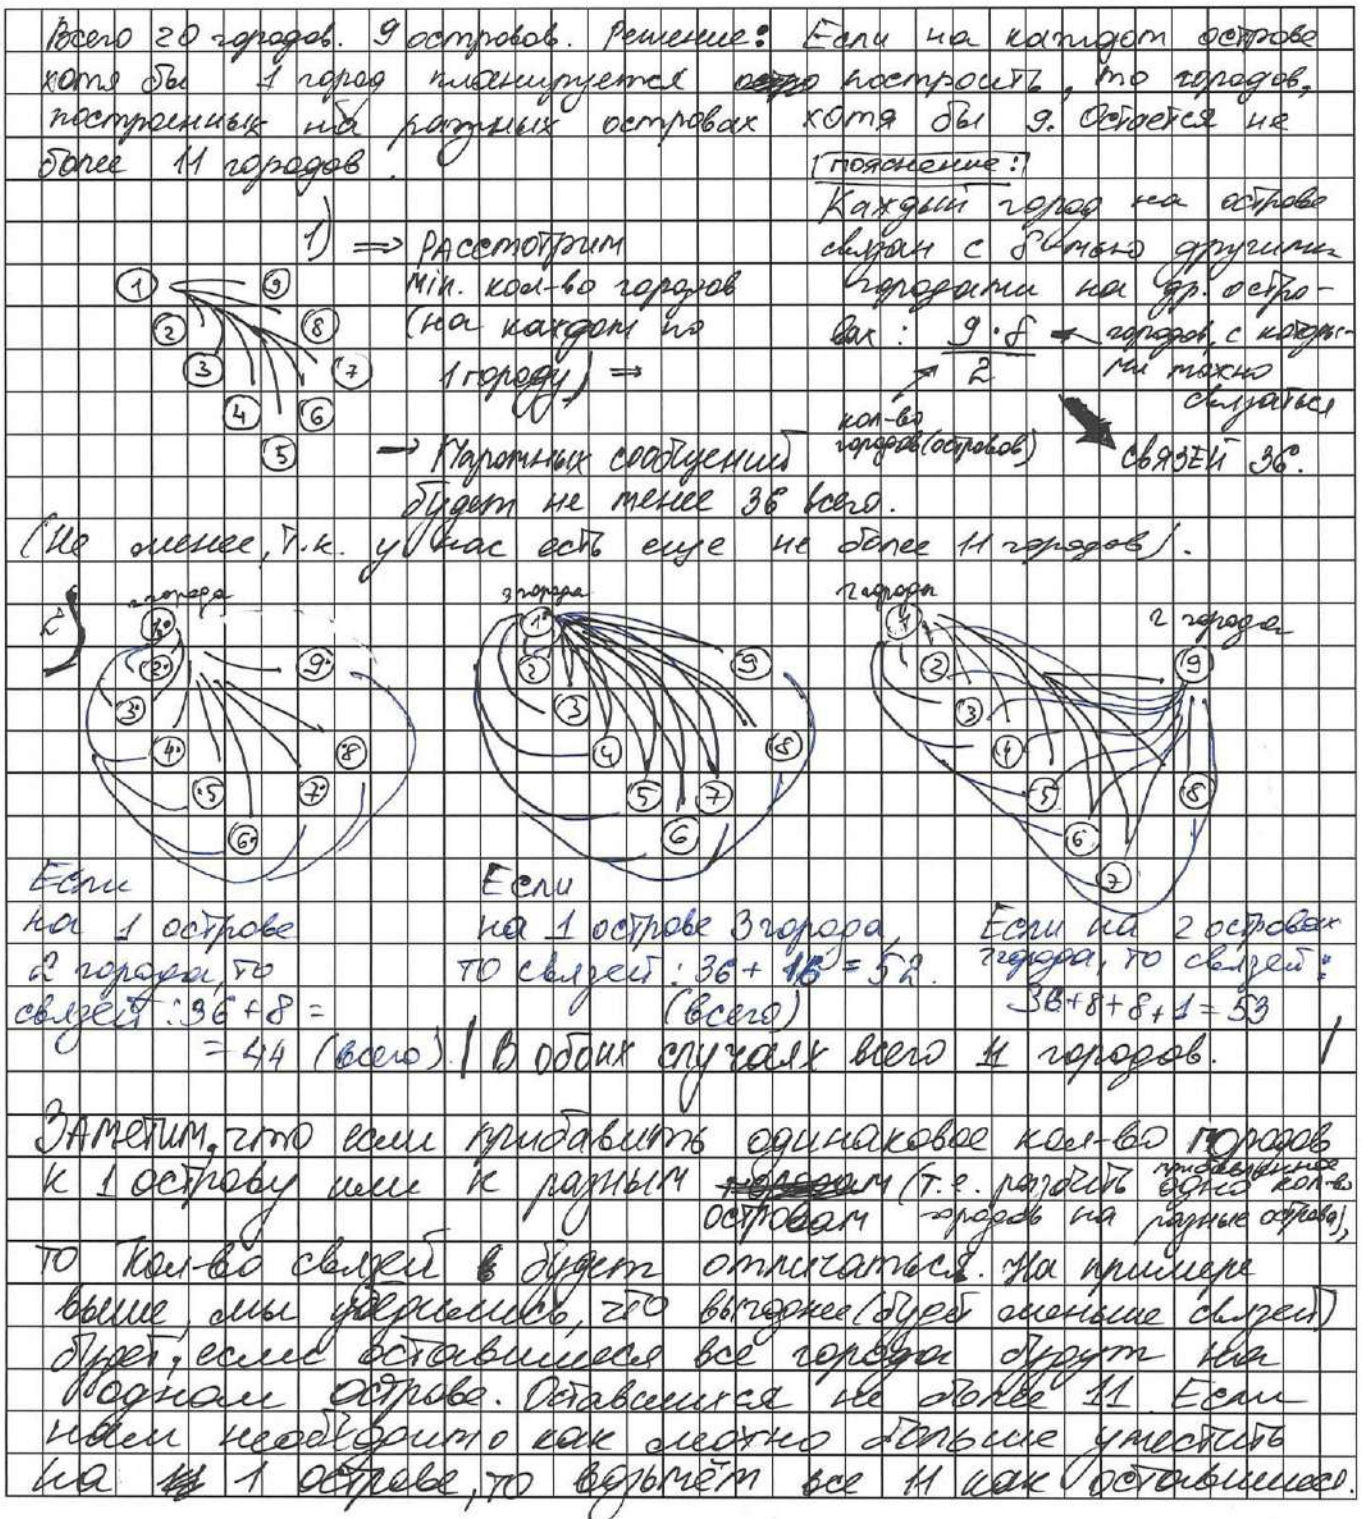 Всего 20 городов. 9 островов. Решение: Если на каждом острове
хотя бы 1 город планируется построить, то городов,
построенных на разных островах хотя бы 9. Остается не
более 11 городов.
Пояснение:
Каждый город на острове
связан с 8-мью другими
городами на др. остро-
вах: 9·8 / 2
городов, с которы-
ми можно
связаться
кол-во
городов (островов)
СВЯЗЕЙ 36.
1) ⇒ Рассмотрим
min. кол-во городов
(на каждом по
1 городу) ⇒
→ Паромных сообщений
будет не менее 36 всего.
1 2 3 4 5 6 7 8 9
(Не менее, т.к. у нас есть еще не более 11 городов).
2)
2 города
1 2 3 4 5 6 7 8 9
3 города
1 2 3 4 5 6 7 8 9
2 города
2 города
1 2 3 4 5 6 7 8 9
Если
на 1 острове
2 города, то
связей: 36+8=
=44 (всего).
Если
на 1 острове 3 города,
то связей: 36+16=52.
(всего)
Если на 2 островах
2 города, то связей:
36+8+8+1=53
/ В обоих случаях всего 11 городов. /
Заметим, что если прибавить одинаковое кол-во городов
к 1 острову или к разным островам (т.е. разбить прибавленное одно кол-во
городов на разные острова),
то кол-во связей будет отличаться. На примере
выше, мы убедились, что выгоднее (будет меньше связей)
будет, если оставшиеся все города будут на
одном острове. Оставшихся не более 11. Если
нам необходимо как можно больше уместить
на 1 острове, то возьмём все 11 как оставшиеся.